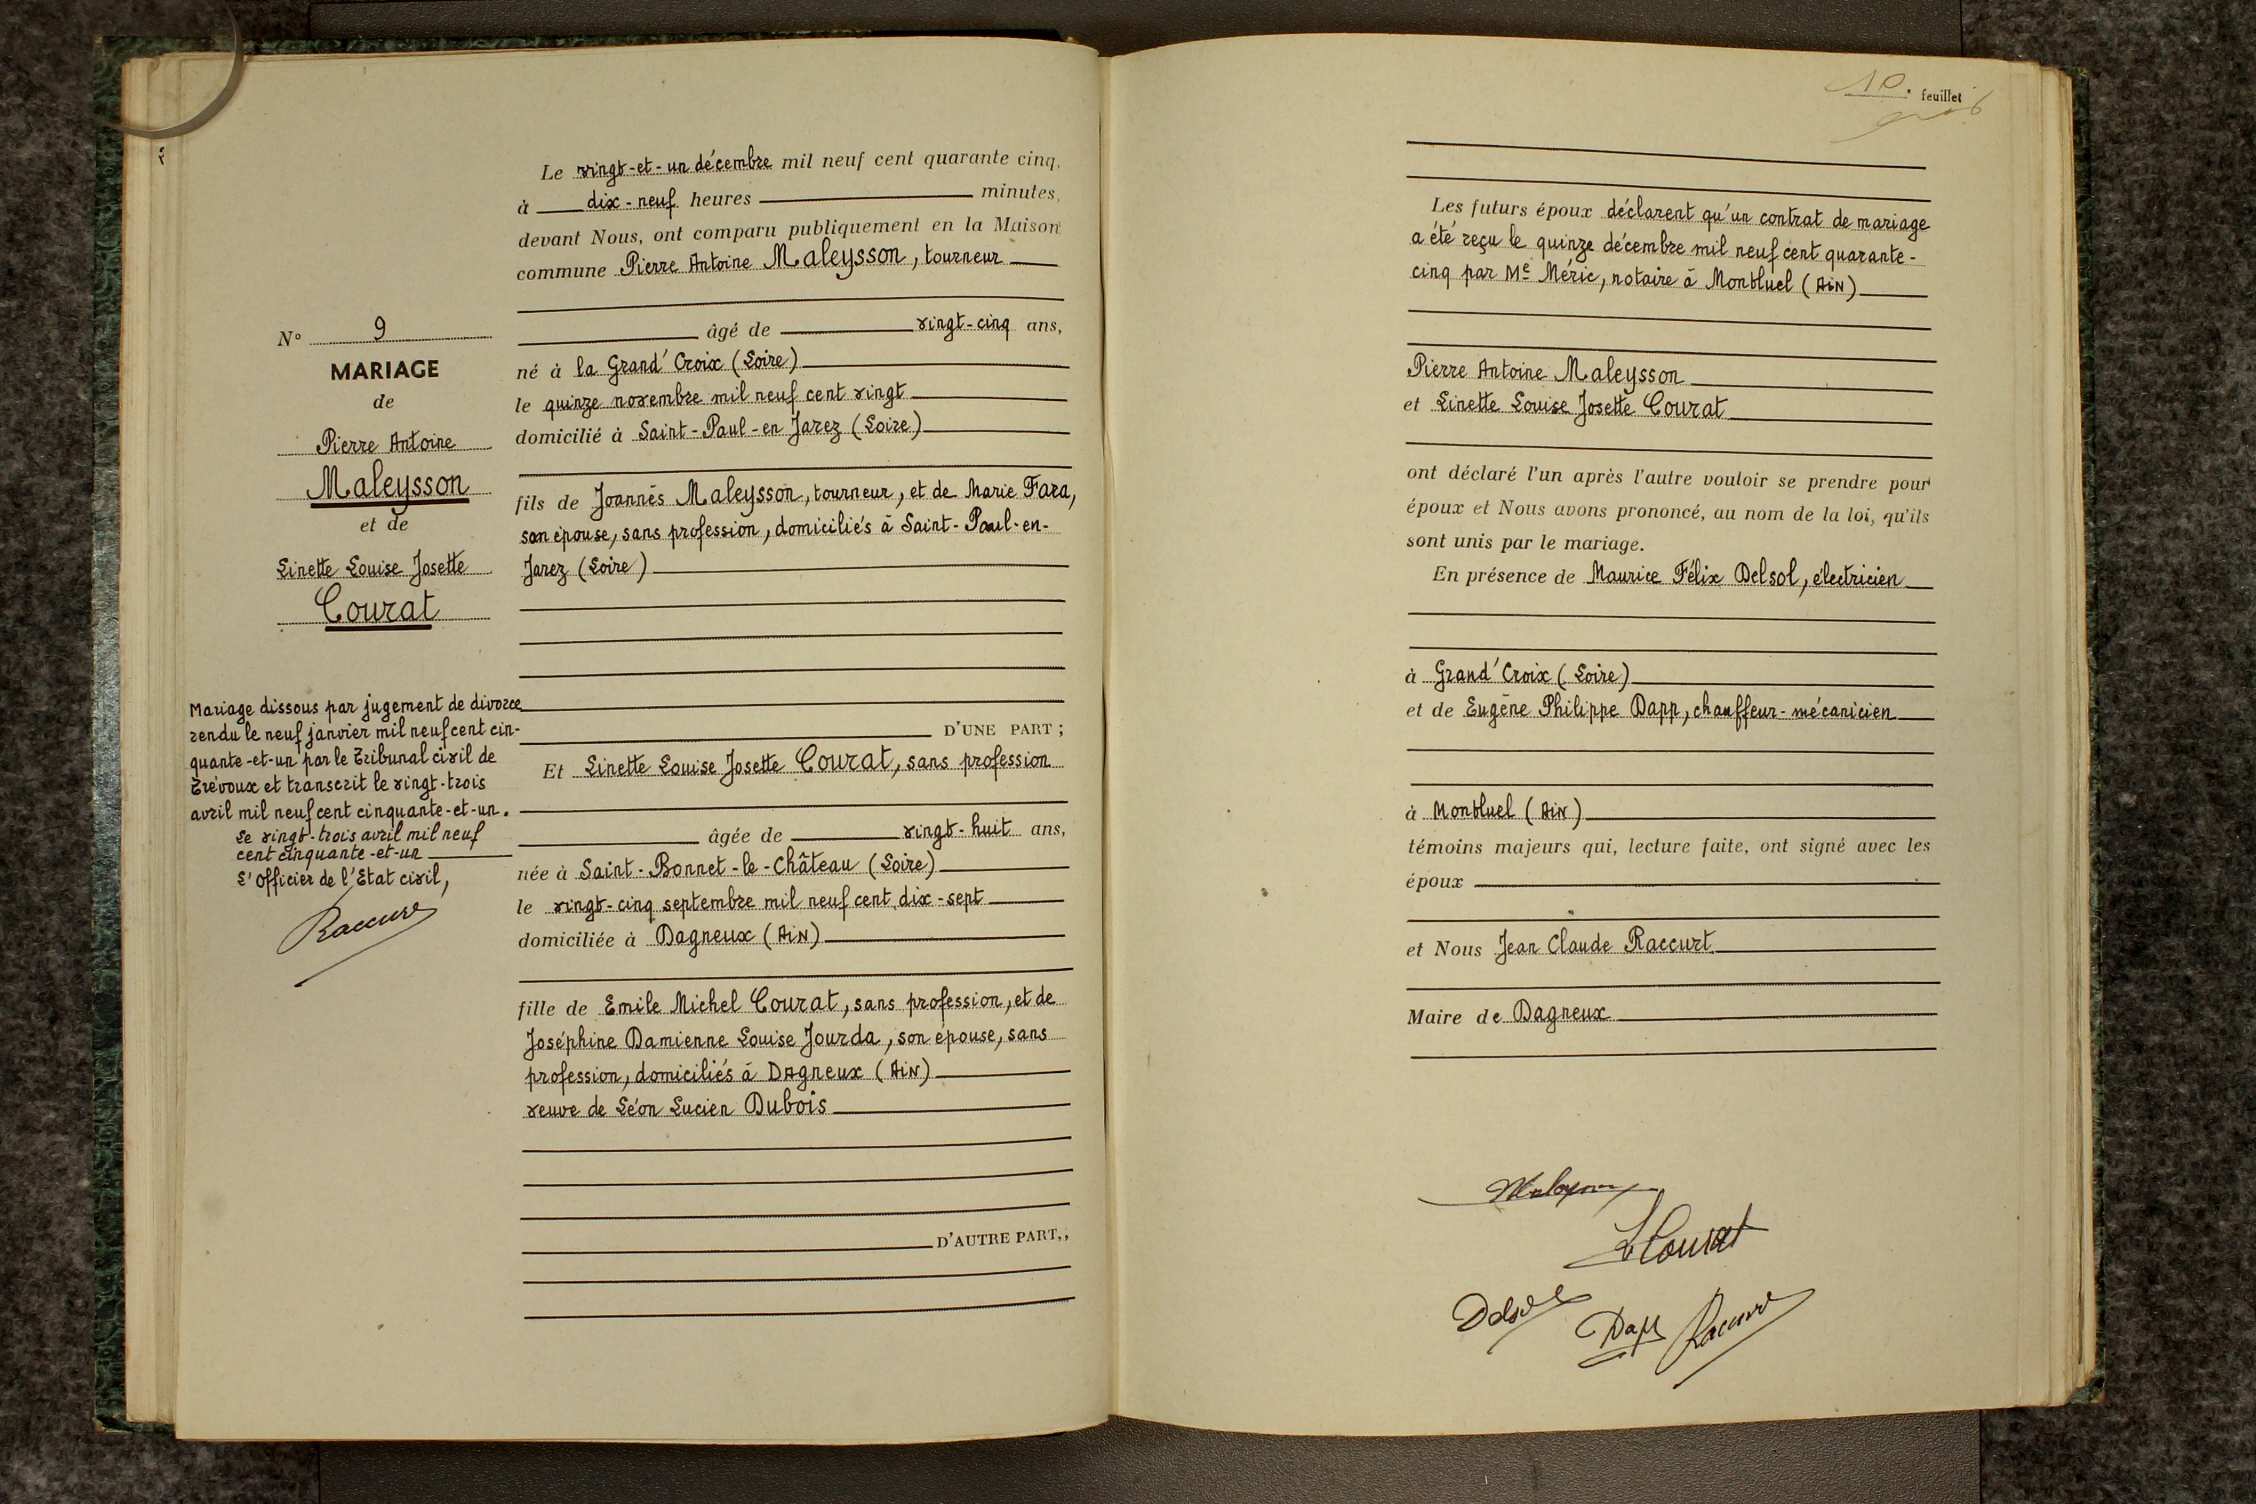 N° 9
MARIAGE
de
Pierre Antoine
Maleysson
et de
Linette Louise Josette
Courat
Mariage dissous par jugement de divorce
rendu le neuf janvier mil neuf cent cin-
quante-et-un par le Tribunal civil de
Trévoux et transcrit le vingt-trois
avril mil neuf cent cinquante-et-un.
Le vingt-trois avril mil neuf
cent cinquante-et-un
L'Officier de l'Etat civil,
Raccurt
Le vingt-et-un décembre mil neuf cent quarante cinq,
à dix-neuf heures minutes,
devant Nous, ont comparu publiquement en la Maison
commune Pierre Antoine Maleysson, tourneur
âgé de vingt-cinq ans,
né à la Grand'Croix (Loire)
le quinze novembre mil neuf cent vingt
domicilié à Saint-Paul-en Jarez (Loire)
fils de Joannès Maleysson, tourneur, et de Marie Fara,
son épouse, sans profession, domiciliés à Saint-Paul-en-
Jarez (Loire)
D'UNE PART ;
Et Linette Louise Josette Courat, sans profession
âgée de vingt-huit ans,
née à Saint-Bonnet-le-Château (Loire)
le vingt-cinq septembre mil neuf cent dix-sept
domiciliée à Dagneux (Ain)
fille de Emile Michel Courat, sans profession, et de
Joséphine Damienne Louise Jourda, son épouse, sans
profession, domiciliés à Dagneux (Ain)
veuve de Léon Lucien Dubois
D'AUTRE PART,,
10. feuillet
Les futurs époux déclarent qu'un contrat de mariage
a été reçu le quinze décembre mil neuf cent quarante-
cinq par Me Méric, notaire à Montluel (Ain)
Pierre Antoine Maleysson
et Linette Louise Josette Courat
ont déclaré l'un après l'autre vouloir se prendre pour
époux et Nous avons prononcé, au nom de la loi, qu'ils
sont unis par le mariage.
En présence de Maurice Félix Delsol, électricien
à Grand'Croix (Loire)
et de Eugène Philippe Dapp, chauffeur-mécanicien
à Montluel (Ain)
témoins majeurs qui, lecture faite, ont signé avec les
époux
et Nous Jean Claude Raccurt
Maire de Dagneux
Maleysson
L Courat
Delsol
Dapp Raccurt